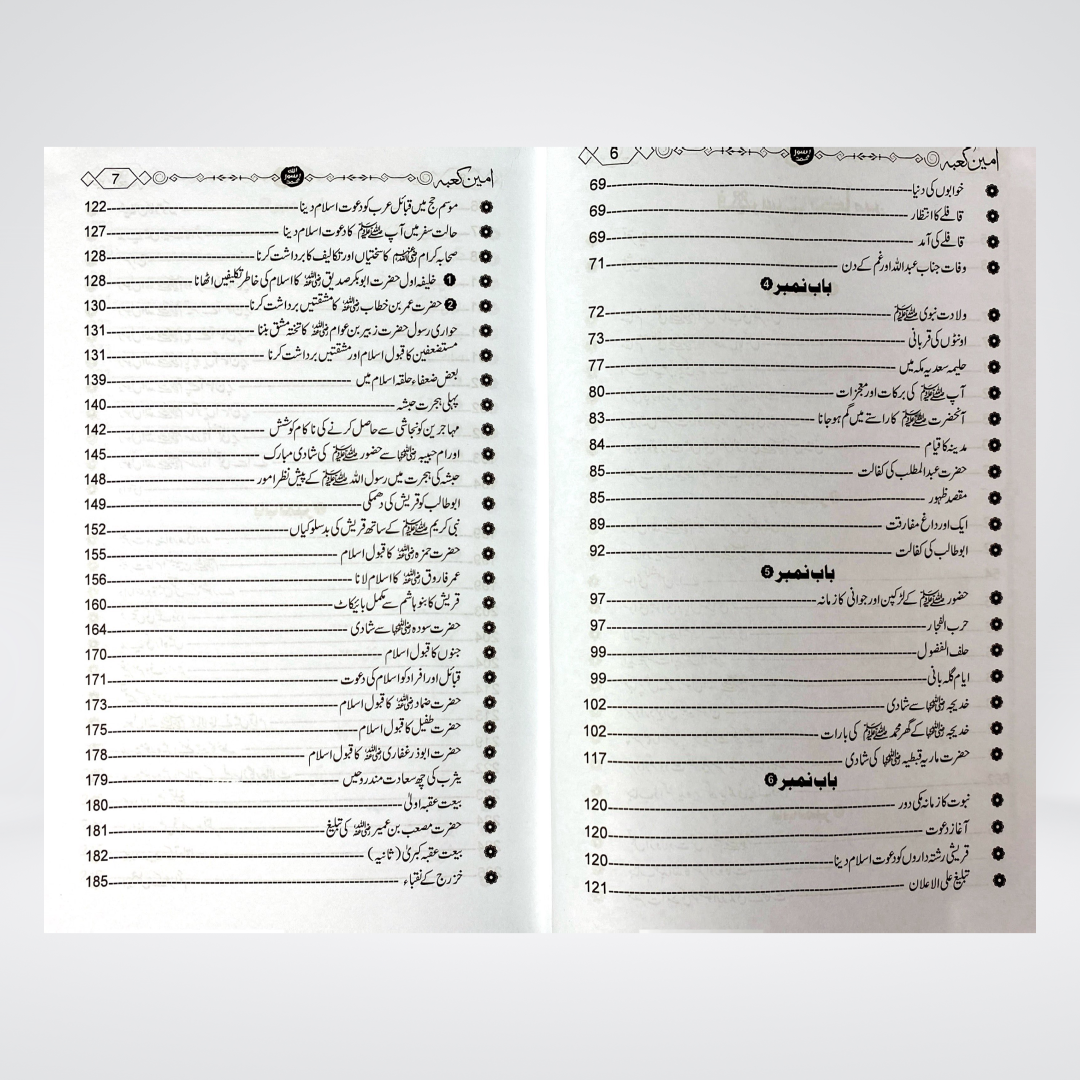 امین کعبہ 6
خوابوں کی دنیا 69
قافلے کا انتظار 69
قافلے کی آمد 69
وفات جناب عبداللہ اور غم کے دن 71
باب نمبر 4
ولادت نبوی ﷺ 72
اونٹوں کی قربانی 73
حلیمہ سعدیہ مکہ میں 77
آپ ﷺ کی برکات اور معجزات 80
آنحضرت ﷺ کا راستے میں گم ہو جانا 83
مدینہ کا قیام 84
حضرت عبدالمطلب کی کفالت 85
مقصد ظہور 85
ایک اور داغ مفارقت 89
ابوطالب کی کفالت 92
باب نمبر 5
حضور ﷺ کے لڑکپن اور جوانی کا زمانہ 97
حرب الفجار 97
حلف الفضول 99
ایام گلہ بانی 99
خدیجہ رضی اللہ عنہا سے شادی 102
خدیجہ رضی اللہ عنہا کے گھر محمد ﷺ کی بارات 102
حضرت ماریہ قبطیہ رضی اللہ عنہا کی شادی 117
باب نمبر 6
نبوت کا زمانہ مکی دور 120
آغاز دعوت 120
قریشی رشتہ داروں کو دعوت اسلام دینا 120
تبلیغ علی الاعلان 121
امین کعبہ 7
موسم حج میں قبائل عرب کو دعوت اسلام دینا 122
حالت سفر میں آپ ﷺ کا دعوت اسلام دینا 127
صحابہ کرام رضی اللہ عنہم کا سختیاں اور تکالیف کا برداشت کرنا 128
1 خلیفہ اول حضرت ابوبکر صدیق رضی اللہ عنہ کا اسلام کی خاطر تکلیفیں اٹھانا 128
2 حضرت عمر بن خطاب رضی اللہ عنہ کا مشقتیں برداشت کرنا 130
حواری رسول حضرت زبیر بن عوام رضی اللہ عنہ کا تختہ مشق بننا 131
مستضعفین کا قبول اسلام اور مشقتیں برداشت کرنا 131
بعض ضعفاء حلقہ اسلام میں 139
پہلی ہجرت حبشہ 140
مہاجرین کو نجاشی سے حاصل کرنے کی ناکام کوشش 142
اور ام حبیبہ رضی اللہ عنہا سے حضور ﷺ کی شادی مبارک 145
حبشہ کی ہجرت میں رسول اللہ ﷺ کے پیش نظر امور 148
ابوطالب کو قریش کی دھمکی 149
نبی کریم ﷺ کے ساتھ قریش کی بدسلوکیاں 152
حضرت حمزہ رضی اللہ عنہ کا قبول اسلام 155
عمر فاروق رضی اللہ عنہ کا اسلام لانا 156
قریش کا بنو ہاشم سے مکمل بائیکاٹ 160
حضرت سودہ رضی اللہ عنہا سے شادی 164
جنوں کا قبول اسلام 170
قبائل اور افراد کو اسلام کی دعوت 171
حضرت ضماد رضی اللہ عنہ کا قبول اسلام 173
حضرت طفیل کا قبول اسلام 175
حضرت ابوذر غفاری رضی اللہ عنہ کا قبول اسلام 178
یثرب کی چھ سعادت مند روحیں 179
بیعت عقبہ اولیٰ 180
حضرت مصعب بن عمیر رضی اللہ عنہ کی تبلیغ 181
بیعت عقبہ کبریٰ (ثانیہ) 182
خزرج کے نقباء 185